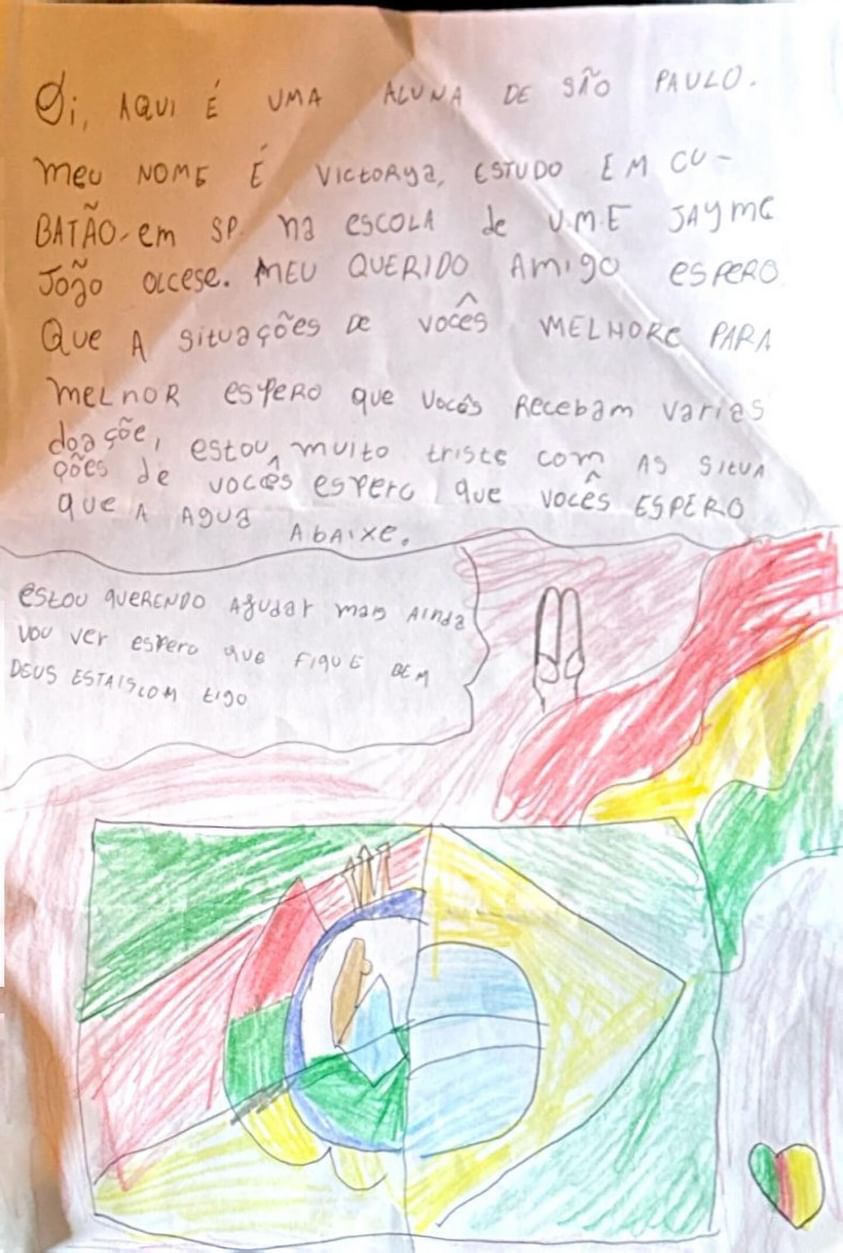 Oi, AQUI É UMA ALUNA DE SÃO PAULO.
meu NOME É VICTORYa, ESTUDO EM CU-
BATÃO-em SP na escola de U.M.E JAYME
João olcese. MEU QUERIDO Amigo espero
Que A situações de vocês MELHORE PARA
meLhOR espero que vocês Recebam varias
doaçõe, estou muito triste com AS SITUA
ções de vocês espero que vocês ESPERO
que A AGUA Abaixe.
estou querendo Ajudar mais Ainda
vou ver espero que FIQUE BEM
DEUS ESTAIS COM tigo